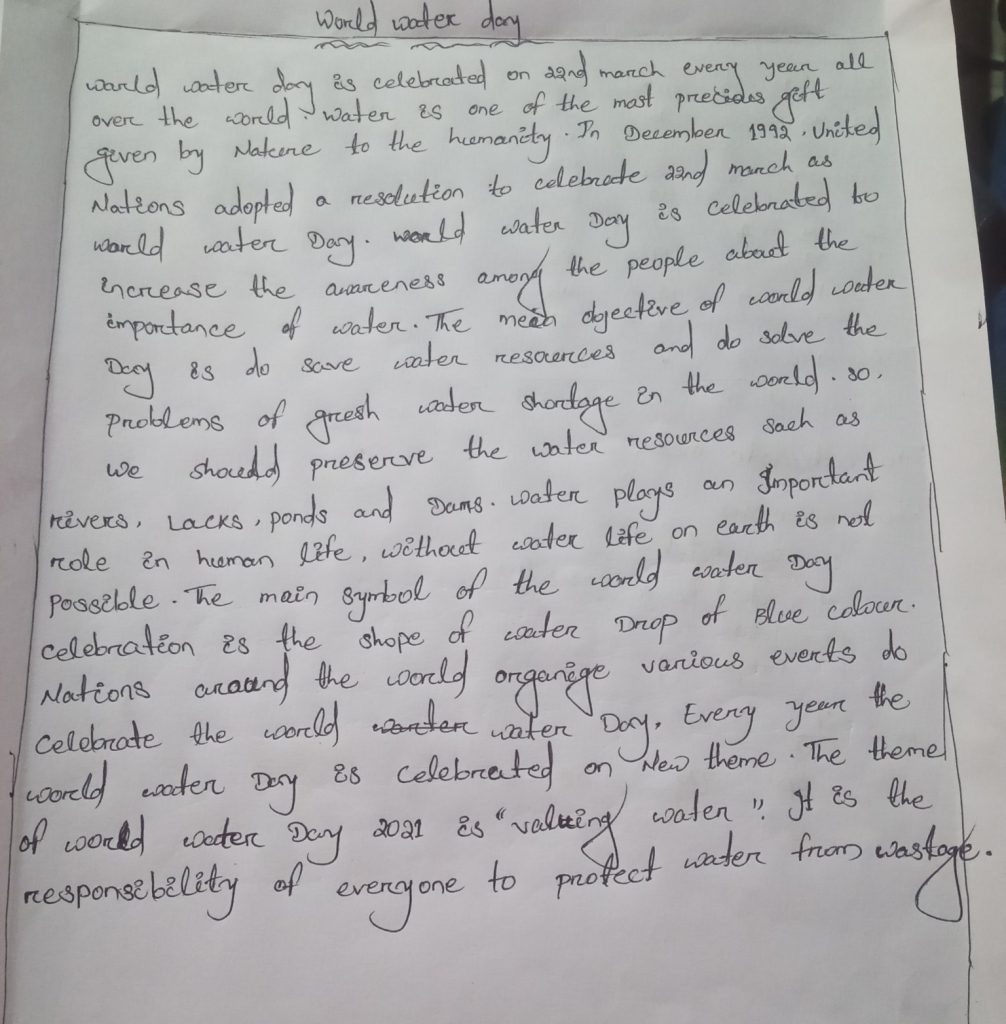 World water day
world water day is celebrated on 22nd march every year all
over the world. water is one of the most precides gift
given by Nature to the humanity. In December 1992, United
Nations adopted a resolution to celebrate 22nd march as
world water Day. world water Day is celebrated to
increase the awareness among the people about the
importance of water. The mein objective of world water
Day is do save water resources and do solve the
problems of gresh water shortage in the world. so,
we should preserve the water resources sach as
rivers, Lacks, ponds and Dams. water plays an Important
role in human life, without water life on earth is not
possible. The main symbol of the world water Day
celebration is the shope of water Drop of Blue colour.
Nations around the world organige various events do
celebrate the world water Day. Every year the
world water Day is celebrated on New theme. The theme
of world water Day 2021 is "valuing water". It is the
responsibility of everyone to protect water from wastage.